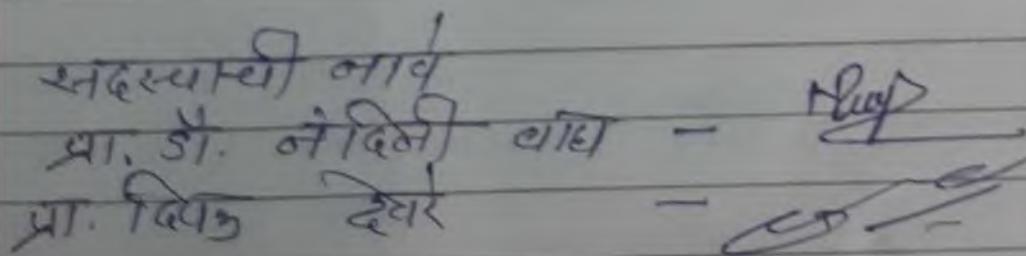 सदस्यांची नावे
प्रा. डॉ. नंदिनी वाघ -
प्रा. दिपक देवरे -